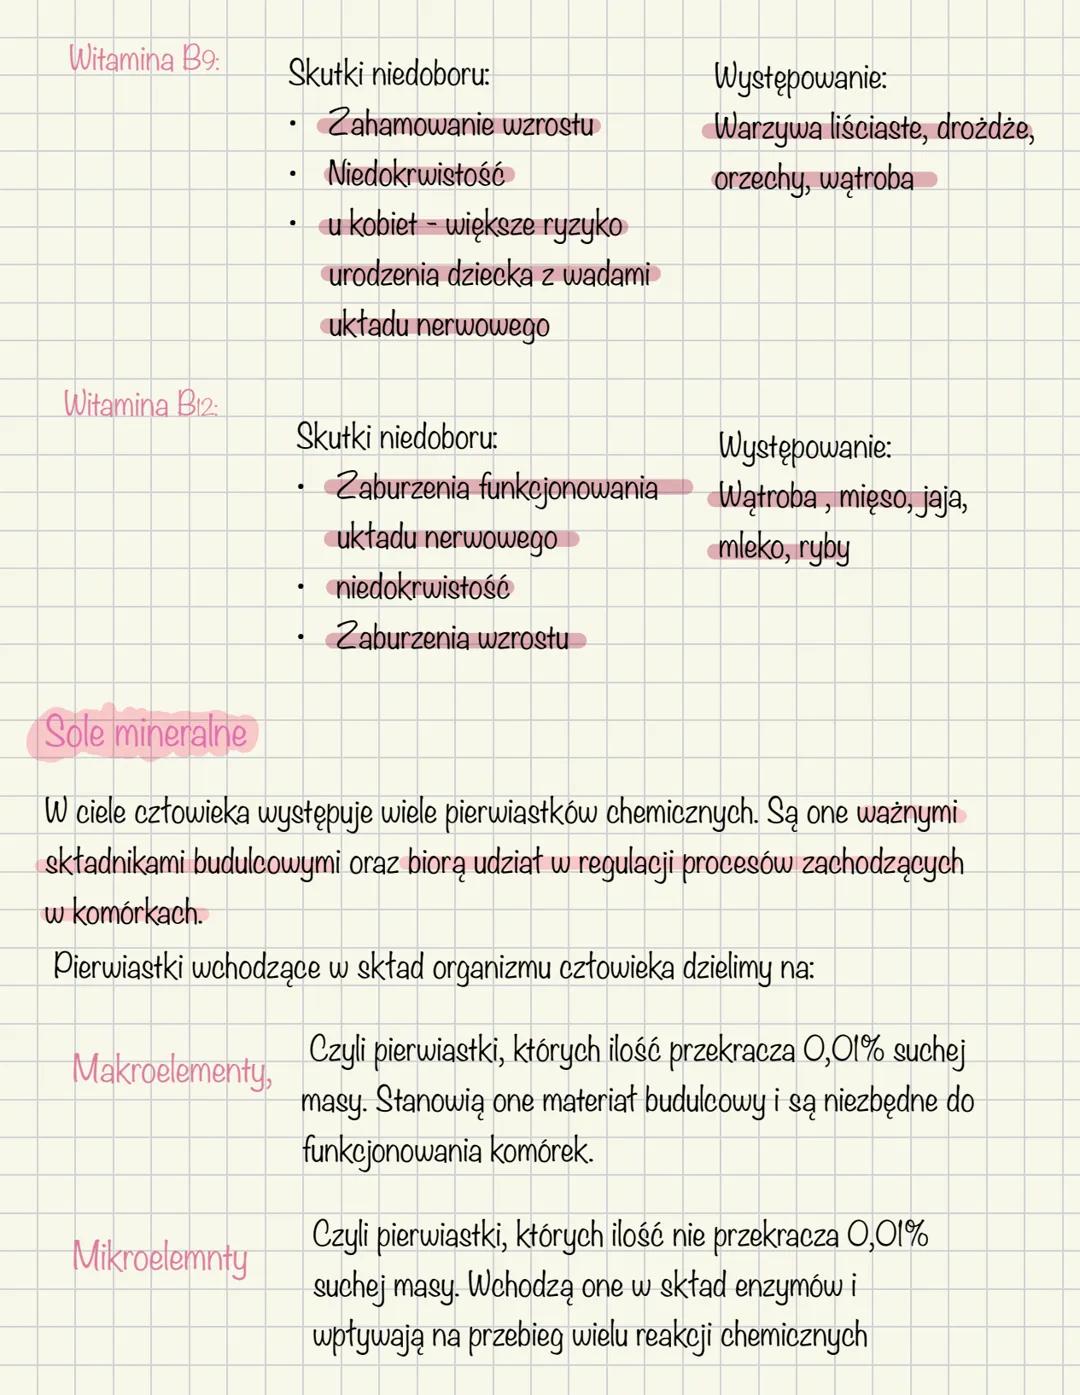 Witamina B9:
Skutki niedoboru:
• Zahamowanie wzrostu
• Niedokrwistość
• u kobiet - większe ryzyko
urodzenia dziecka z wadami
układu nerwowego
Występowanie:
Warzywa liściaste, drożdże,
orzechy, wątroba
Witamina B12:
Skutki niedoboru:
• Zaburzenia funkcjonowania
układu nerwowego
• niedokrwistość
• Zaburzenia wzrostu
Występowanie:
Wątroba , mięso, jaja,
mleko, ryby
Sole mineralne
W ciele człowieka występuje wiele pierwiastków chemicznych. Są one ważnymi
składnikami budulcowymi oraz biorą udział w regulacji procesów zachodzących
w komórkach.
Pierwiastki wchodzące w skład organizmu człowieka dzielimy na:
Makroelementy,
Czyli pierwiastki, których ilość przekracza 0,01% suchej
masy. Stanowią one materiał budulcowy i są niezbędne do
funkcjonowania komórek.
Mikroelemnty
Czyli pierwiastki, których ilość nie przekracza 0,01%
suchej masy. Wchodzą one w skład enzymów i
wpływają na przebieg wielu reakcji chemicznych